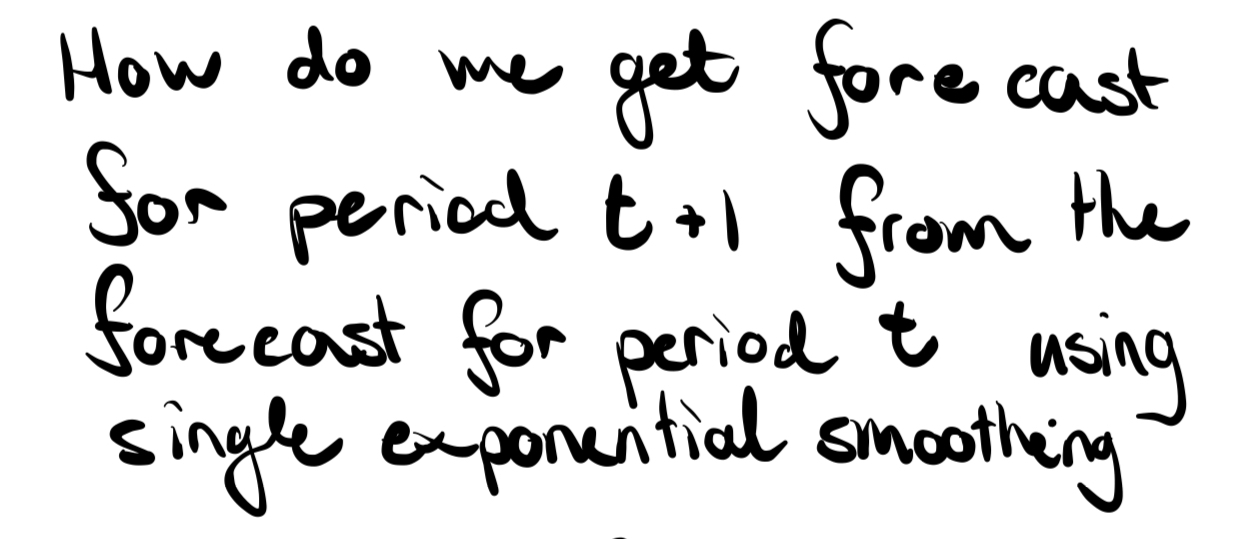 How do we get forecast
for period t+1 from the
forecast for period t using
single exponential smoothing